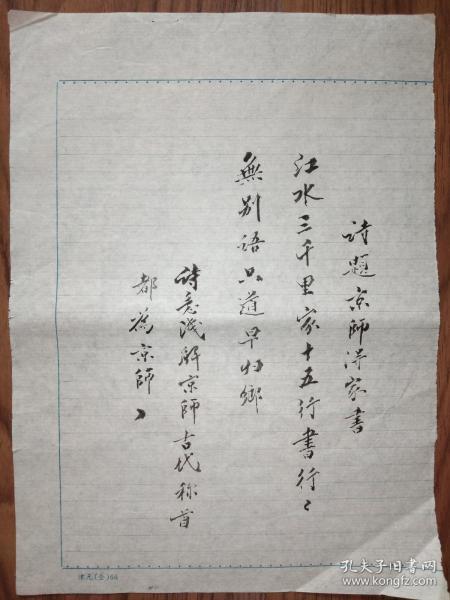 诗题京師得家書
江水三千里家十五行書行〻
無别语只道早归鄉
诗意浅解京師古代称首
都为京師
津元(全)66
孔夫子旧书网
www.kongfz.com